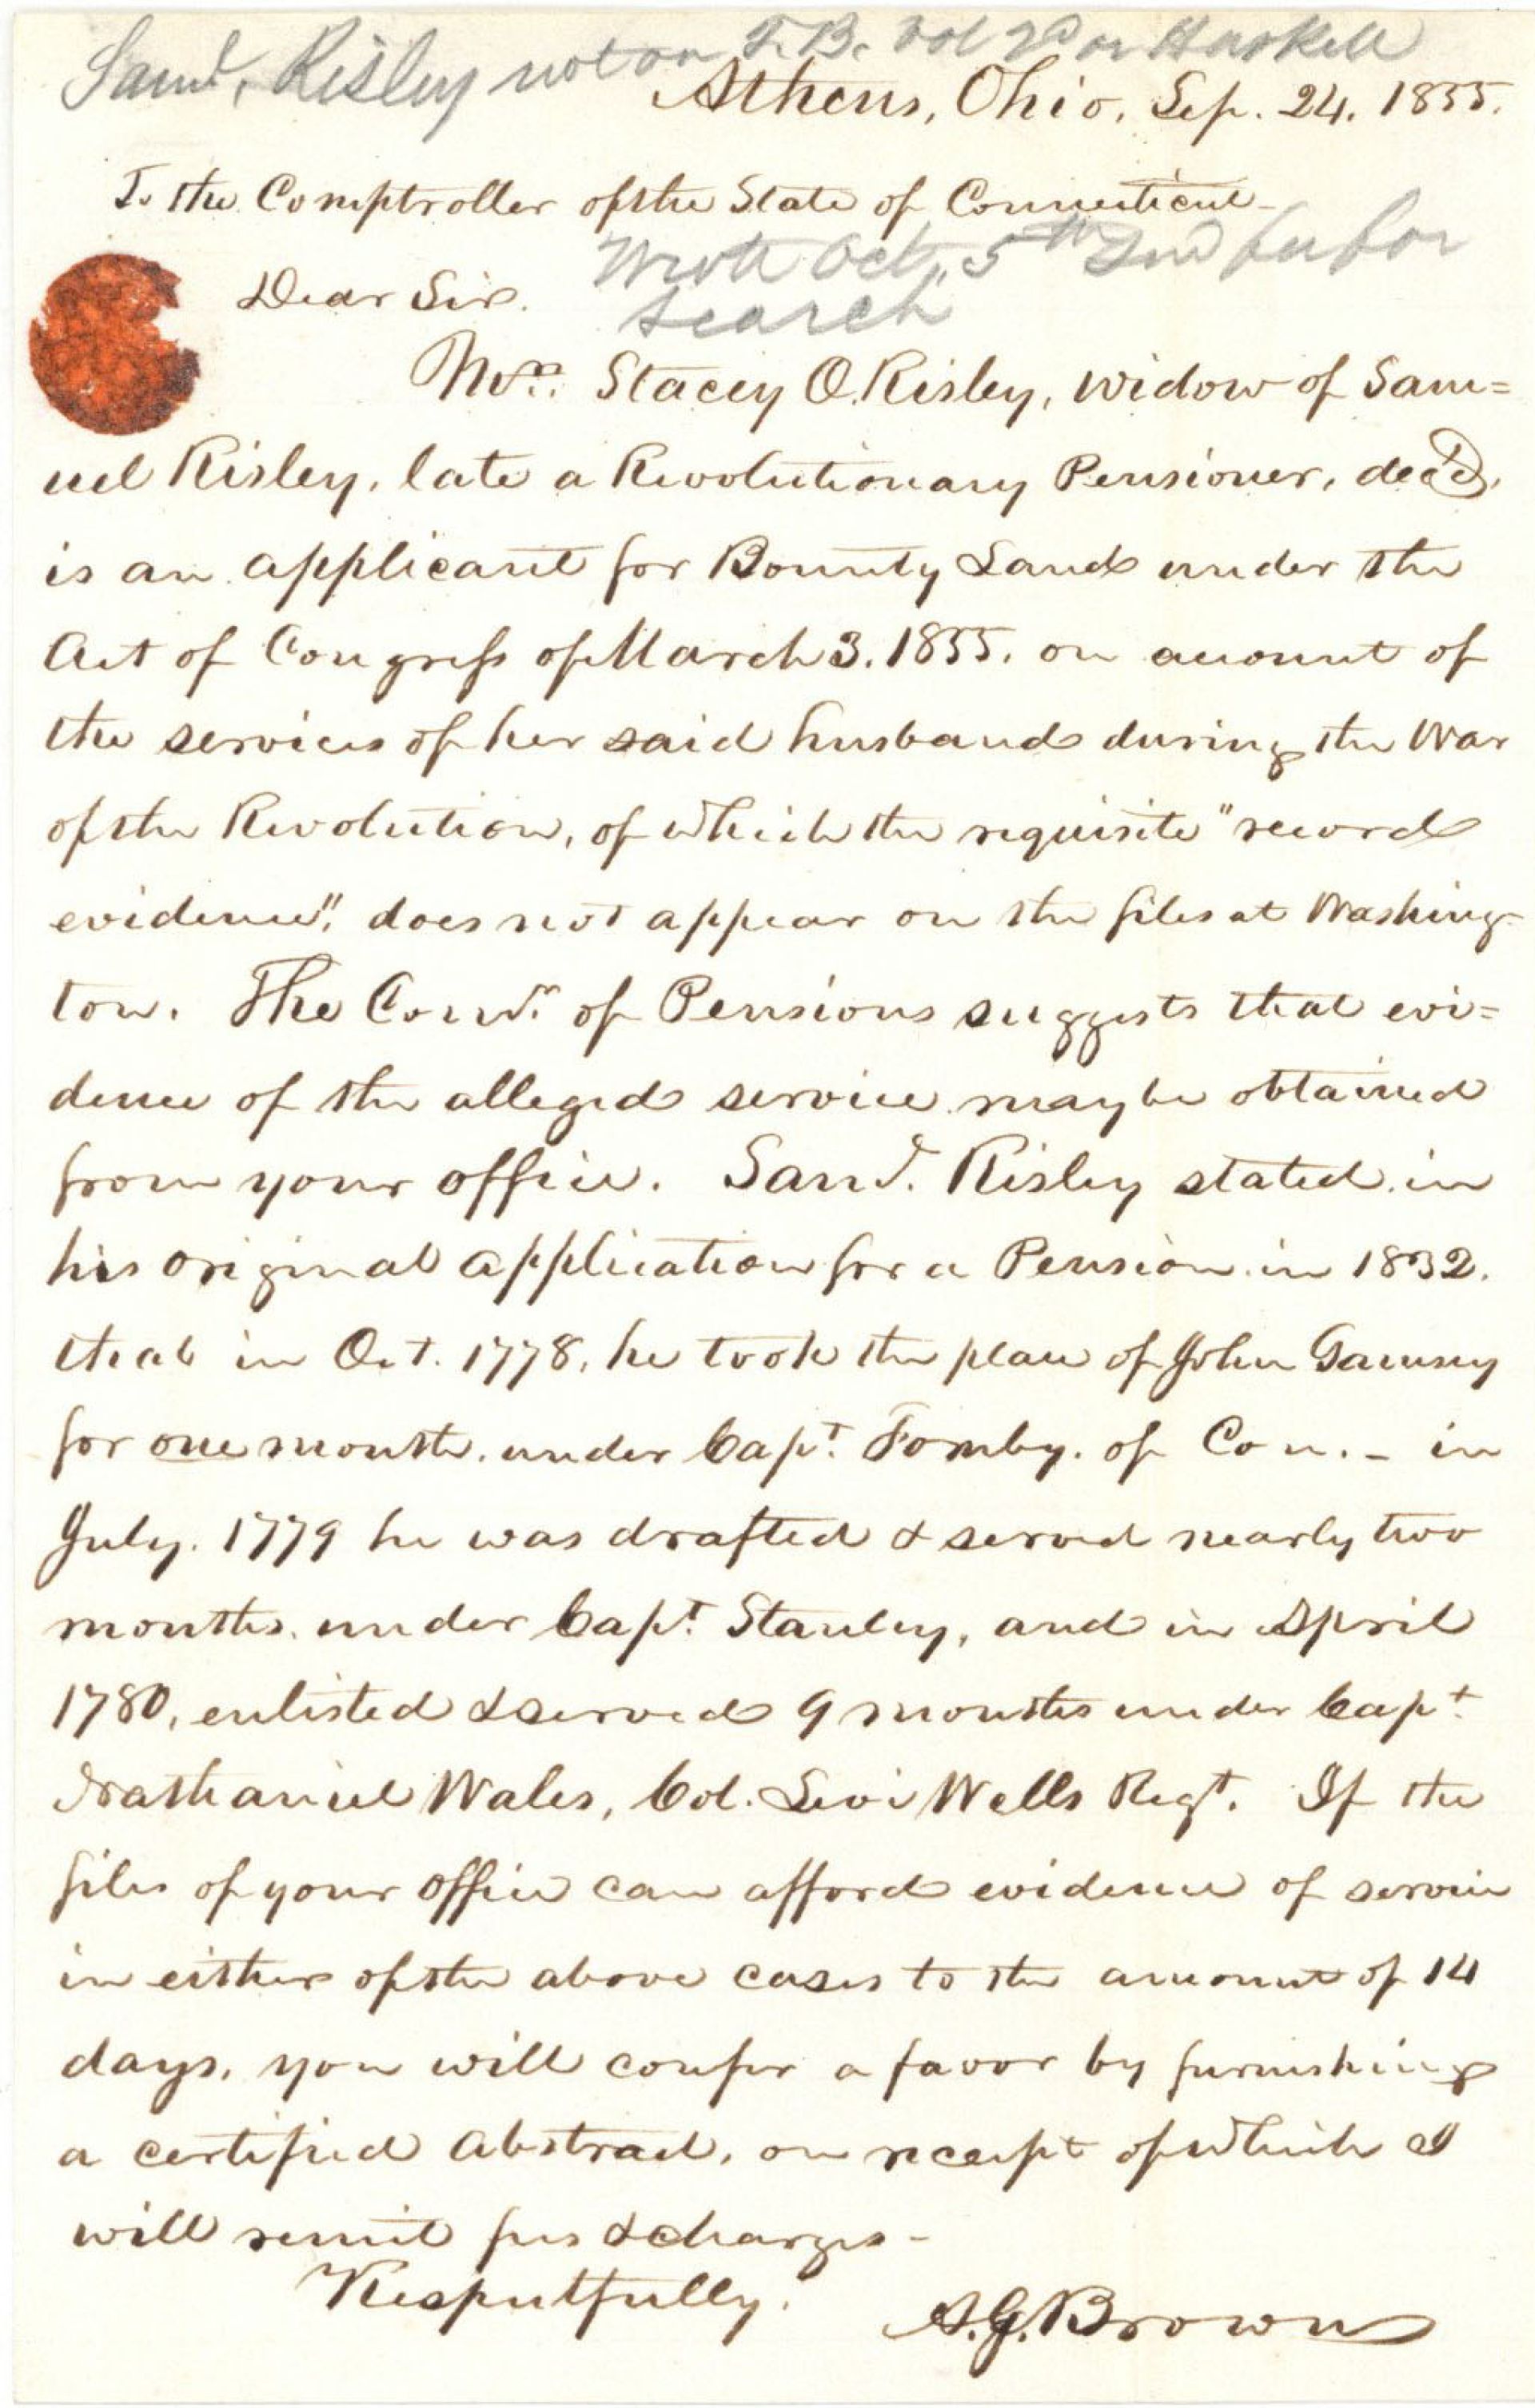 Saml. Risley not on T. B. Vol 2d or Haskell
Athens, Ohio, Sep. 24. 1855.
To the Comptroller of the State of Connecticut
Wrote Oct, 5th Send fee for
Dear Sir.
search
Mrs. Stacey O. Risley, widow of Sam=
uel Risley, late a Revolutionary Pensioner, decd,
is an applicant for Bounty Land under the
Act of Congress of March 3. 1855. on account of
the services of her said husband during the War
of the Revolution, of which the requisite "record
evidence", does not appear on the files at Washing-
ton. The Comr. of Pensions suggests that evi=
dence of the alleged service may be obtained
from your office. Saml. Risley stated in
his original application for a Pension in 1832.
that in Oct. 1778, he took the place of John
for one month. under Capt. of Con. - in
July. 1779 he was drafted & served nearly two
months. under Capt. Stanley, and in April
1780, enlisted & served 9 months under Capt.
Nathaniel Wales, Col. Levi Wells Regt. If the
files of your office can afford evidence of service
in either of the above cases to the amount of 14
days, you will confer a favor by furnishing
a certified abstract, on receipt of which I
will remit fees & charges -
Respectfully.
A. G. Brown